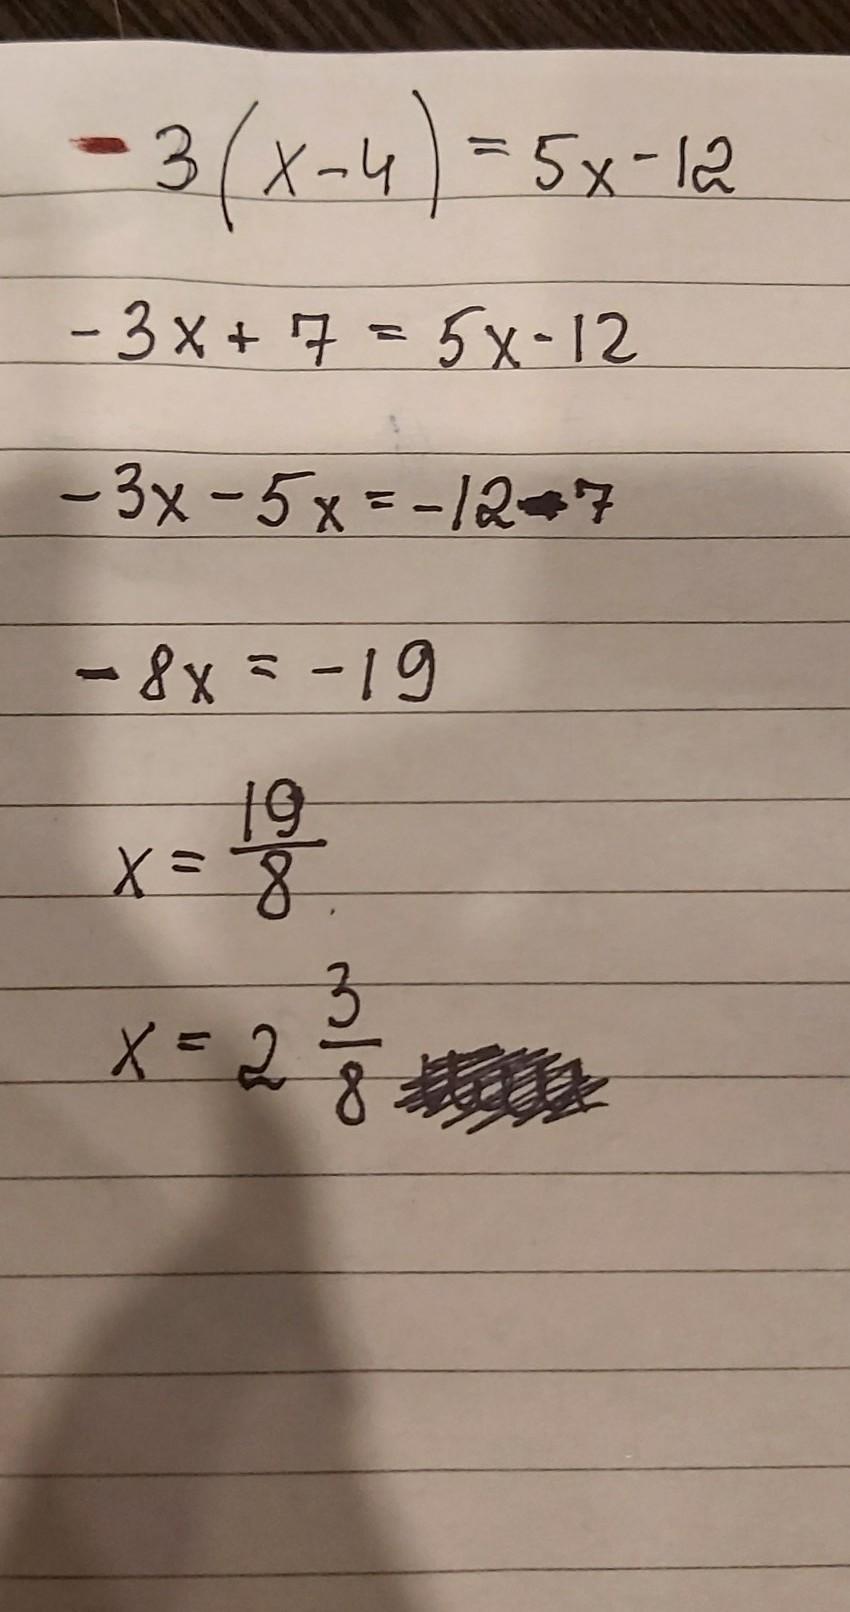 - 3(x-4) = 5x-12
-3x + 7 = 5x-12
-3x - 5x = -12-7
-8x = -19
x = 19/8
x = 2 3/8